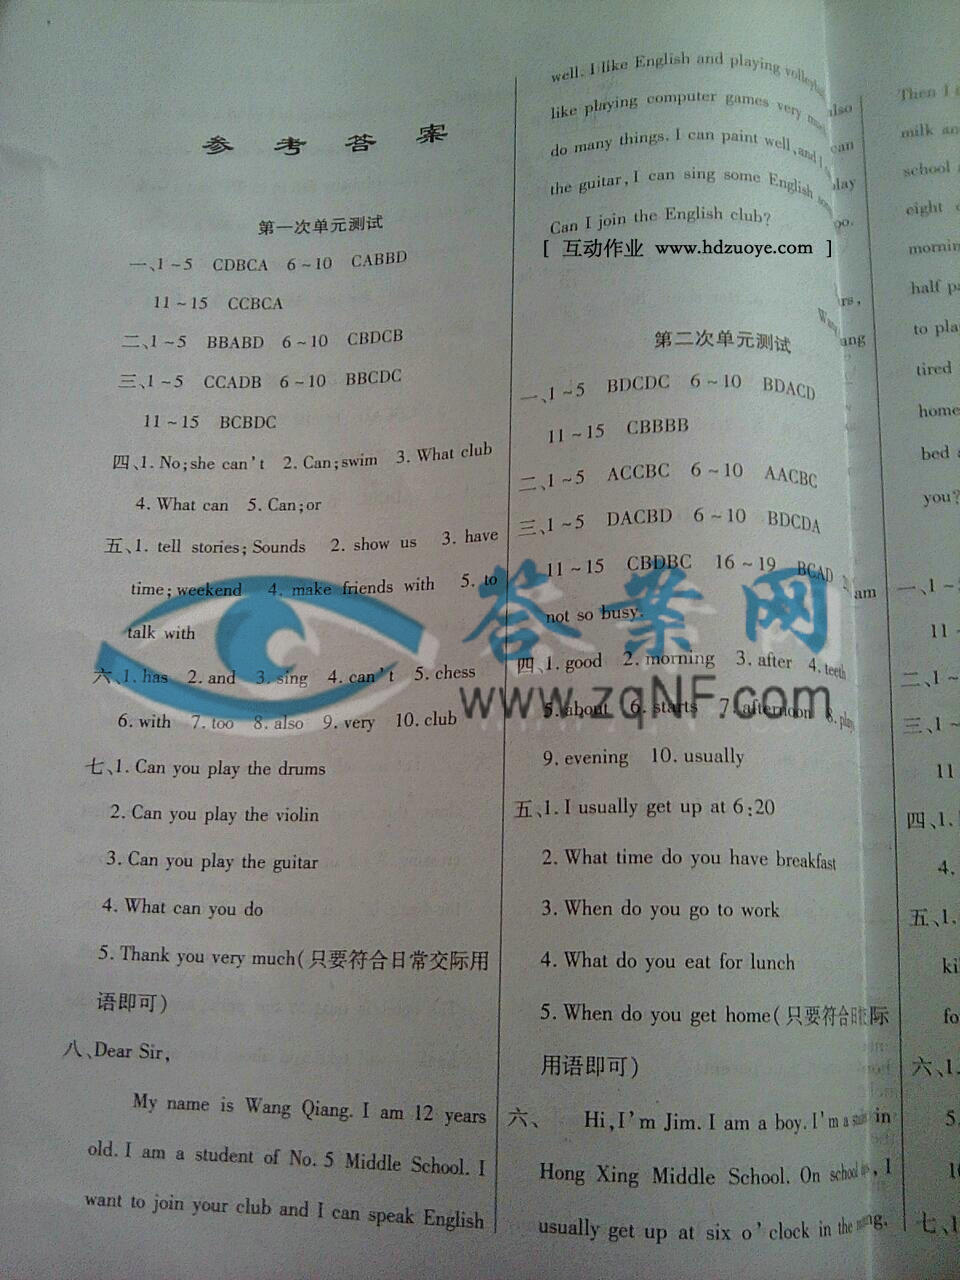 参考答案
第一次单元测试
一、1~5 CDBCA 6~10 CABBD
11~15 CCBCA
二、1~5 BBABD 6~10 CBDCB
三、1~5 CCADB 6~10 BBCDC
11~15 BCBDC
四、1. No;she can't 2. Can;swim 3. What club
4. What can 5. Can;or
五、1. tell stories; Sounds 2. show us 3. have
time; weekend 4. make friends with 5. to
talk with
六、1. has 2. and 3. sing 4. can't 5. chess
6. with 7. too 8. also 9. very 10. club
七、1. Can you play the drums
2. Can you play the violin
3. Can you play the guitar
4. What can you do
5. Thank you very much(只要符合日常交际用
语即可)
八、Dear Sir,
My name is Wang Qiang. I am 12 years
old. I am a student of No. 5 Middle School. I
want to join your club and I can speak English
well. I like English and playing
like playing computer games very also
do many things. I can paint well, and I can
the guitar, I can sing some English play
Can I join the English club?
[ 互动作业 www.hdzuoye.com ]
第二次单元测试
一、1~5 BDCDC 6~10 BDACD
11~15 CBBBB
二、1~5 ACCBC 6~10 AACBC
三、1~5 DACBD 6~10 BDCDA
11~15 CBDBC 16~19 BCAD am
not so busy.
四、1. good 2. morning 3. after 4. teeth
5. about 6. starts 7. afternoon 8. play
9. evening 10. usually
五、1. I usually get up at 6:20
2. What time do you have breakfast
3. When do you go to work
4. What do you eat for lunch
5. When do you get home(只要符合日常交际
用语即可)
六、 Hi, I'm Jim. I am a boy. I'm a in
Hong Xing Middle School. On school , I
usually get up at six o'clock in the
Then I
milk an
school
eight
mornin
half pa
to pla
tired
home
bed
you?
一、1~5
11~
二、1~
三、1~
11
四、1.
4.
五、1.
ki
fo
六、1.
5.
10
七、1
答案网
www.zqNF.com